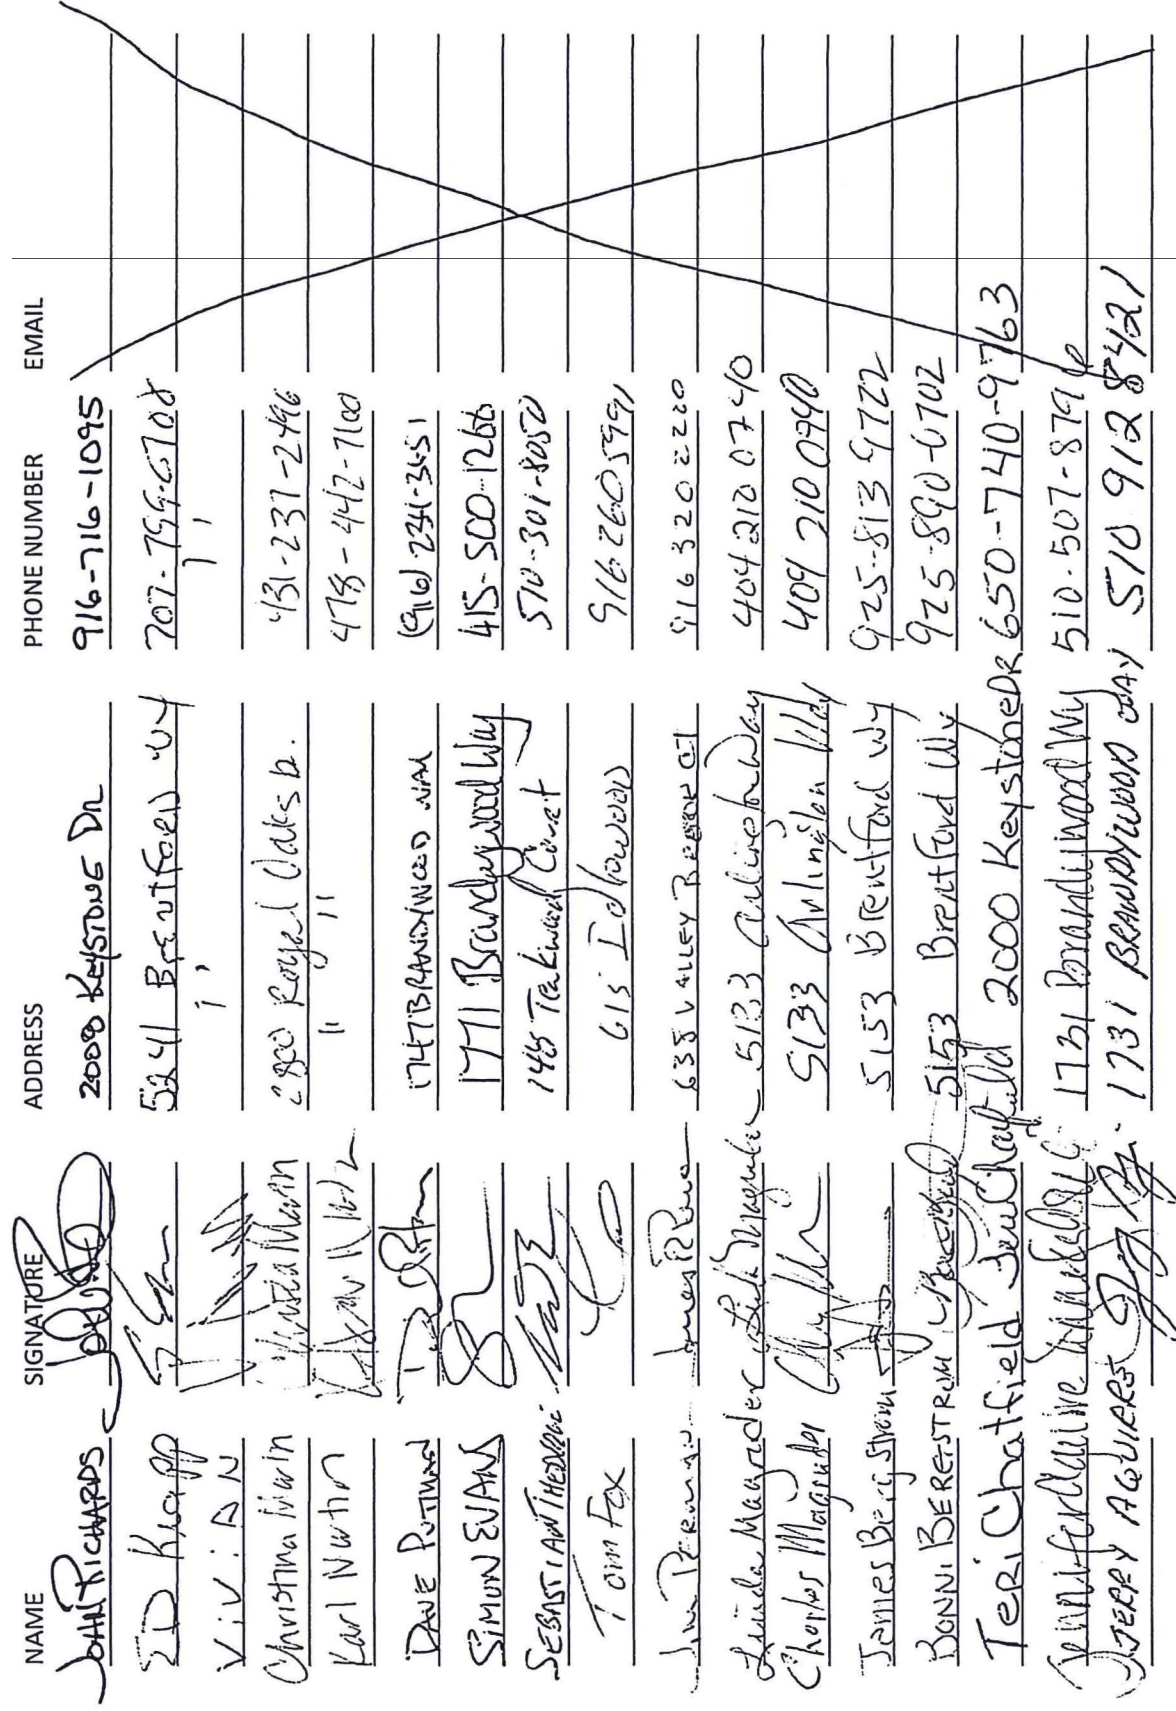 NAME SIGNATURE ADDRESS PHONE NUMBER EMAIL
JOHN RICHARDS 2000 KEYSTONE DR 916-716-1095
ED Knapp 5241 BRENTFORD WY 707-799-6708
ViViAN " "
Christina Marin 2800 Royal Oaks Dr. 431-237-2496
Karl " " 478-442-7100
DAVE PUTMAN 1747 BRANDYWOOD WAY (916) 234-3451
SIMON EVANS 1771 Brandywood Way 415-500-1266
SEBASTIAN 148 Teakwood Court 570-301-8050
Tom Fox 615 Idlewood 916 260 5991
638 VALLEY CT 916 320 2220
Linda Magruder Linda Magruder 5133 Arlington Way 404 210 0740
Charles Magruder 5133 Arlington Way 404 210 0940
James Bergstrom 5153 Brentford Wy 925-813-9722
BONNI BERGSTROM 5153 Brentford Wy 925-890-6702
TeRi Chatfield 2000 Keystone DR 650-740-9763
Jennifer 1731 Brandywood Wy 510-507-879
JERRY AGUIRRE 1731 BRANDYWOOD WAY 510 912 8421